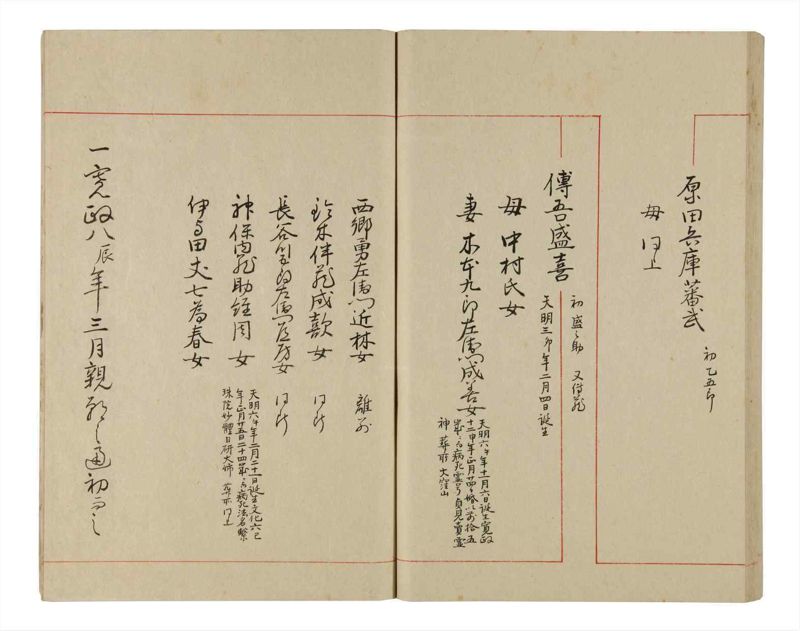 原田兵庫蕃武
初乙五郎
母 同上
傳吾盛喜
初盛之助 又傳蔵
天明三卯年二月四日誕生
母 中村氏女
妻 木本九郎左衛門成善女
天明六午年十一月六日誕生寛政
十二申年正月廿四日婚以前拾五
歳ニ而病死霊号貞見貴霊
神 葬所大窪山
西郷勇左衛門近林女 離別
鈴木伴蔵成歖女 同断
長谷金左衛門直房女 同断
神保内蔵助経周女
天明六午年二月二十一日誕生文化六巳
年正月廿五日二十四歳ニ而病死法名繁
珠院妙體日研大姉 葬所同上
伊与田丈七為春女
一寛政八辰年三月親願之通初而之